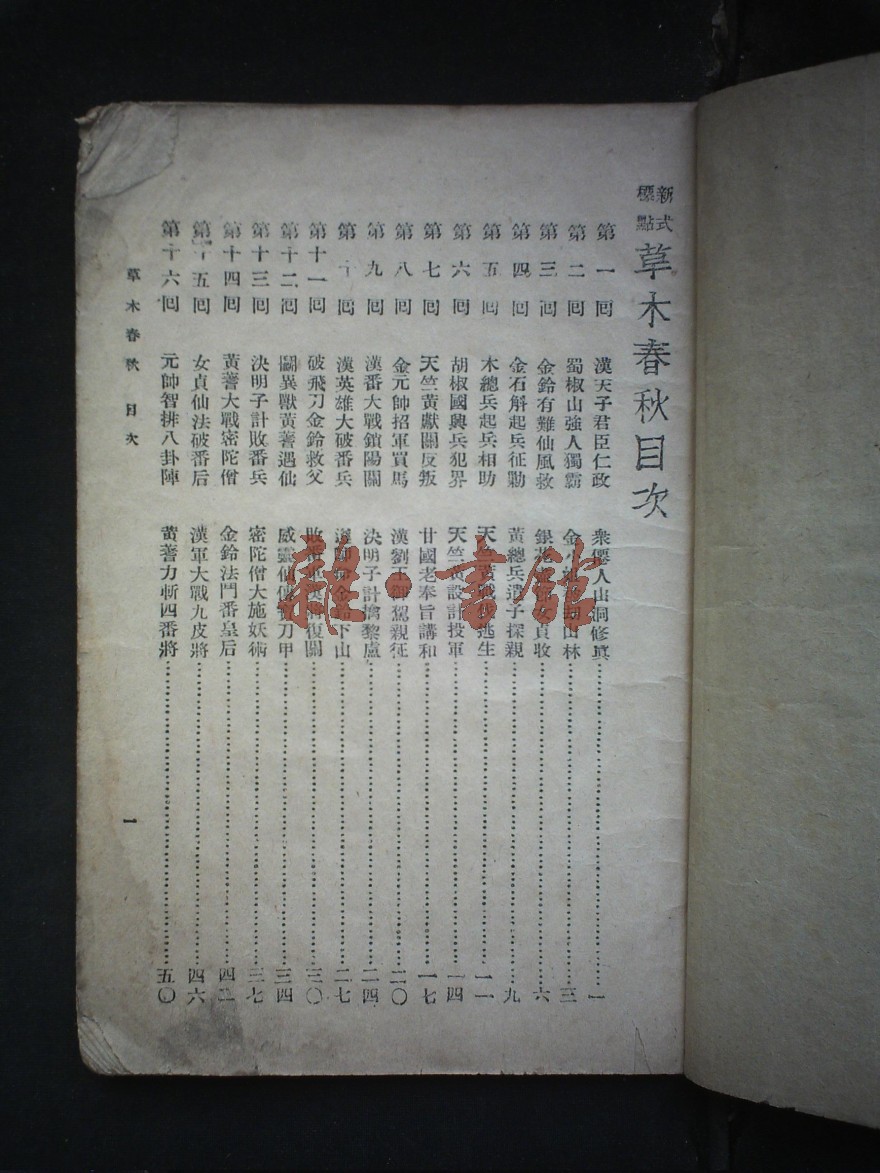 新式標點 草木春秋目次
第一回 漢天子君臣仁政 衆僊人山洞修眞 一
第二回 蜀椒山強人獨霸 金 山林 三
第三回 金鈴有難仙風救 銀花 女貞收 六
第四回 金石斛起兵征勦 黃總兵遣子探親 九
第五回 木總兵起兵相助 天竺黃戰 逃生 一一
第六回 胡椒國興兵犯界 天竺黃設計投軍 一四
第七回 天竺黃獻關反叛 甘國老奉旨講和 一七
第八回 金元帥招軍買馬 漢劉王御駕親征 二〇
第九回 漢番大戰鎖陽關 決明子計擒黎盧 二四
第十回 漢英雄大破番兵 金鈴下山 二七
第十一回 破飛刀金鈴救父 敗番 復關 三〇
第十二回 鬭異獸黃蓍遇仙 威靈仙傳 刀甲 三四
第十三回 決明子計敗番兵 密陀僧大施妖術 三七
第十四回 黃蓍大戰密陀僧 金鈴法鬥番皇后 四二
第十五回 女貞仙法破番后 漢軍大戰九皮將 四六
第十六回 元帥智排八卦陣 黃蓍力斬四番將 五〇
草木春秋 目次 一
雜·書館